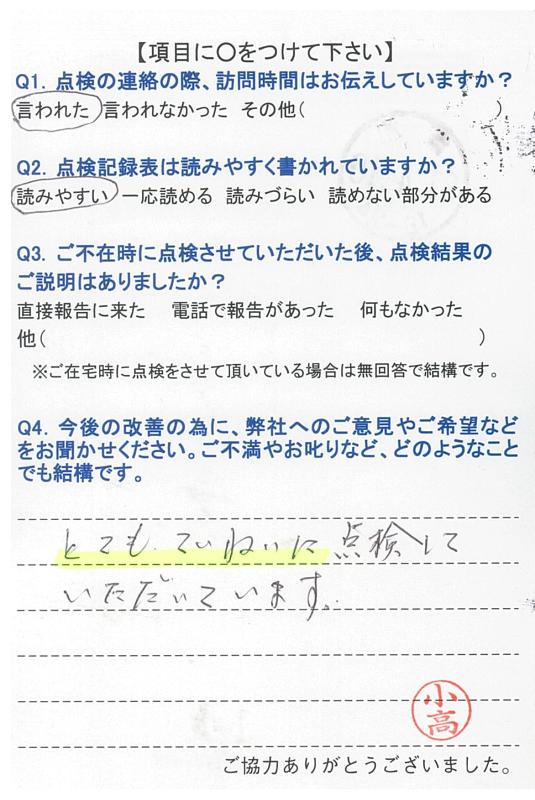 【項目に○をつけて下さい】
Q1. 点検の連絡の際、訪問時間はお伝えしていますか？
言われた 言われなかった その他(　　　)
Q2. 点検記録表は読みやすく書かれていますか？
読みやすい 一応読める 読みづらい 読めない部分がある
Q3. ご不在時に点検させていただいた後、点検結果の
ご説明はありましたか？
直接報告に来た 電話で報告があった 何もなかった
他(　　　)
※ご在宅時に点検をさせて頂いている場合は無回答で結構です。
Q4. 今後の改善の為に、弊社へのご意見やご希望など
をお聞かせください。ご不満やお叱りなど、どのようなこと
でも結構です。
とても、ていねいに点検して
いただいています。
小高
ご協力ありがとうございました。